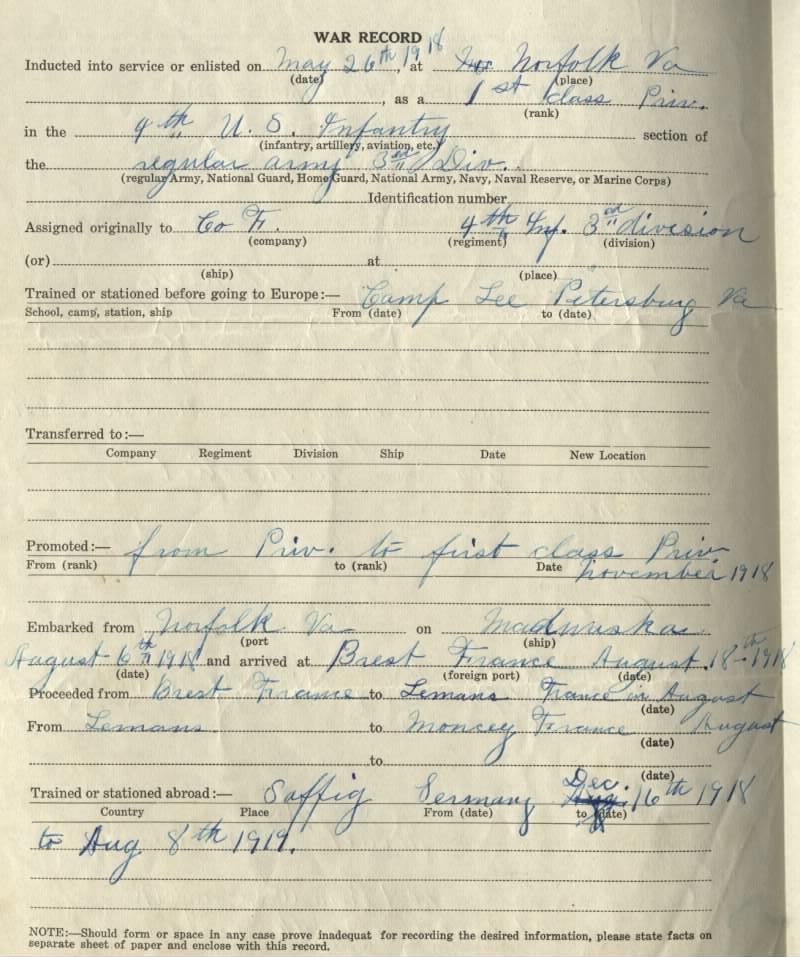 WAR RECORD
Inducted into service or enlisted on May 26th, 1918 at Norfolk Va
(date) (place)
, as a 1st class Priv.
(rank)
in the 4th U. S. Infantry section of
(infantry, artillery, aviation, etc.)
the regular army 3rd Div.
(regular Army, National Guard, Home Guard, National Army, Navy, Naval Reserve, or Marine Corps)
Identification number
Assigned originally to Co F. 4th Inf. 3rd division
(company) (regiment) (division)
(or) at
(ship) (place)
Trained or stationed before going to Europe:— Camp Lee Petersburg Va
School, camp, station, ship From (date) to (date)
Transferred to:—
Company Regiment Division Ship Date New Location
Promoted:— from Priv. to first class Priv
From (rank) to (rank) Date november 1918
Embarked from Norfolk Va on Madwuska
(port (ship)
August 6th 1918 and arrived at Brest France August. 18-th 1918
(date) (foreign port) (date)
Proceeded from Brest France to Lemans France in August
(date)
From Lemans. to Moncey France August
(date)
to
(date)
Trained or stationed abroad:— Saffig Germany Dec. 16th 1918
Country Place From (date) to (date)
to Aug 8th 1919.
NOTE:—Should form or space in any case prove inadequat for recording the desired information, please state facts on
separate sheet of paper and enclose with this record.